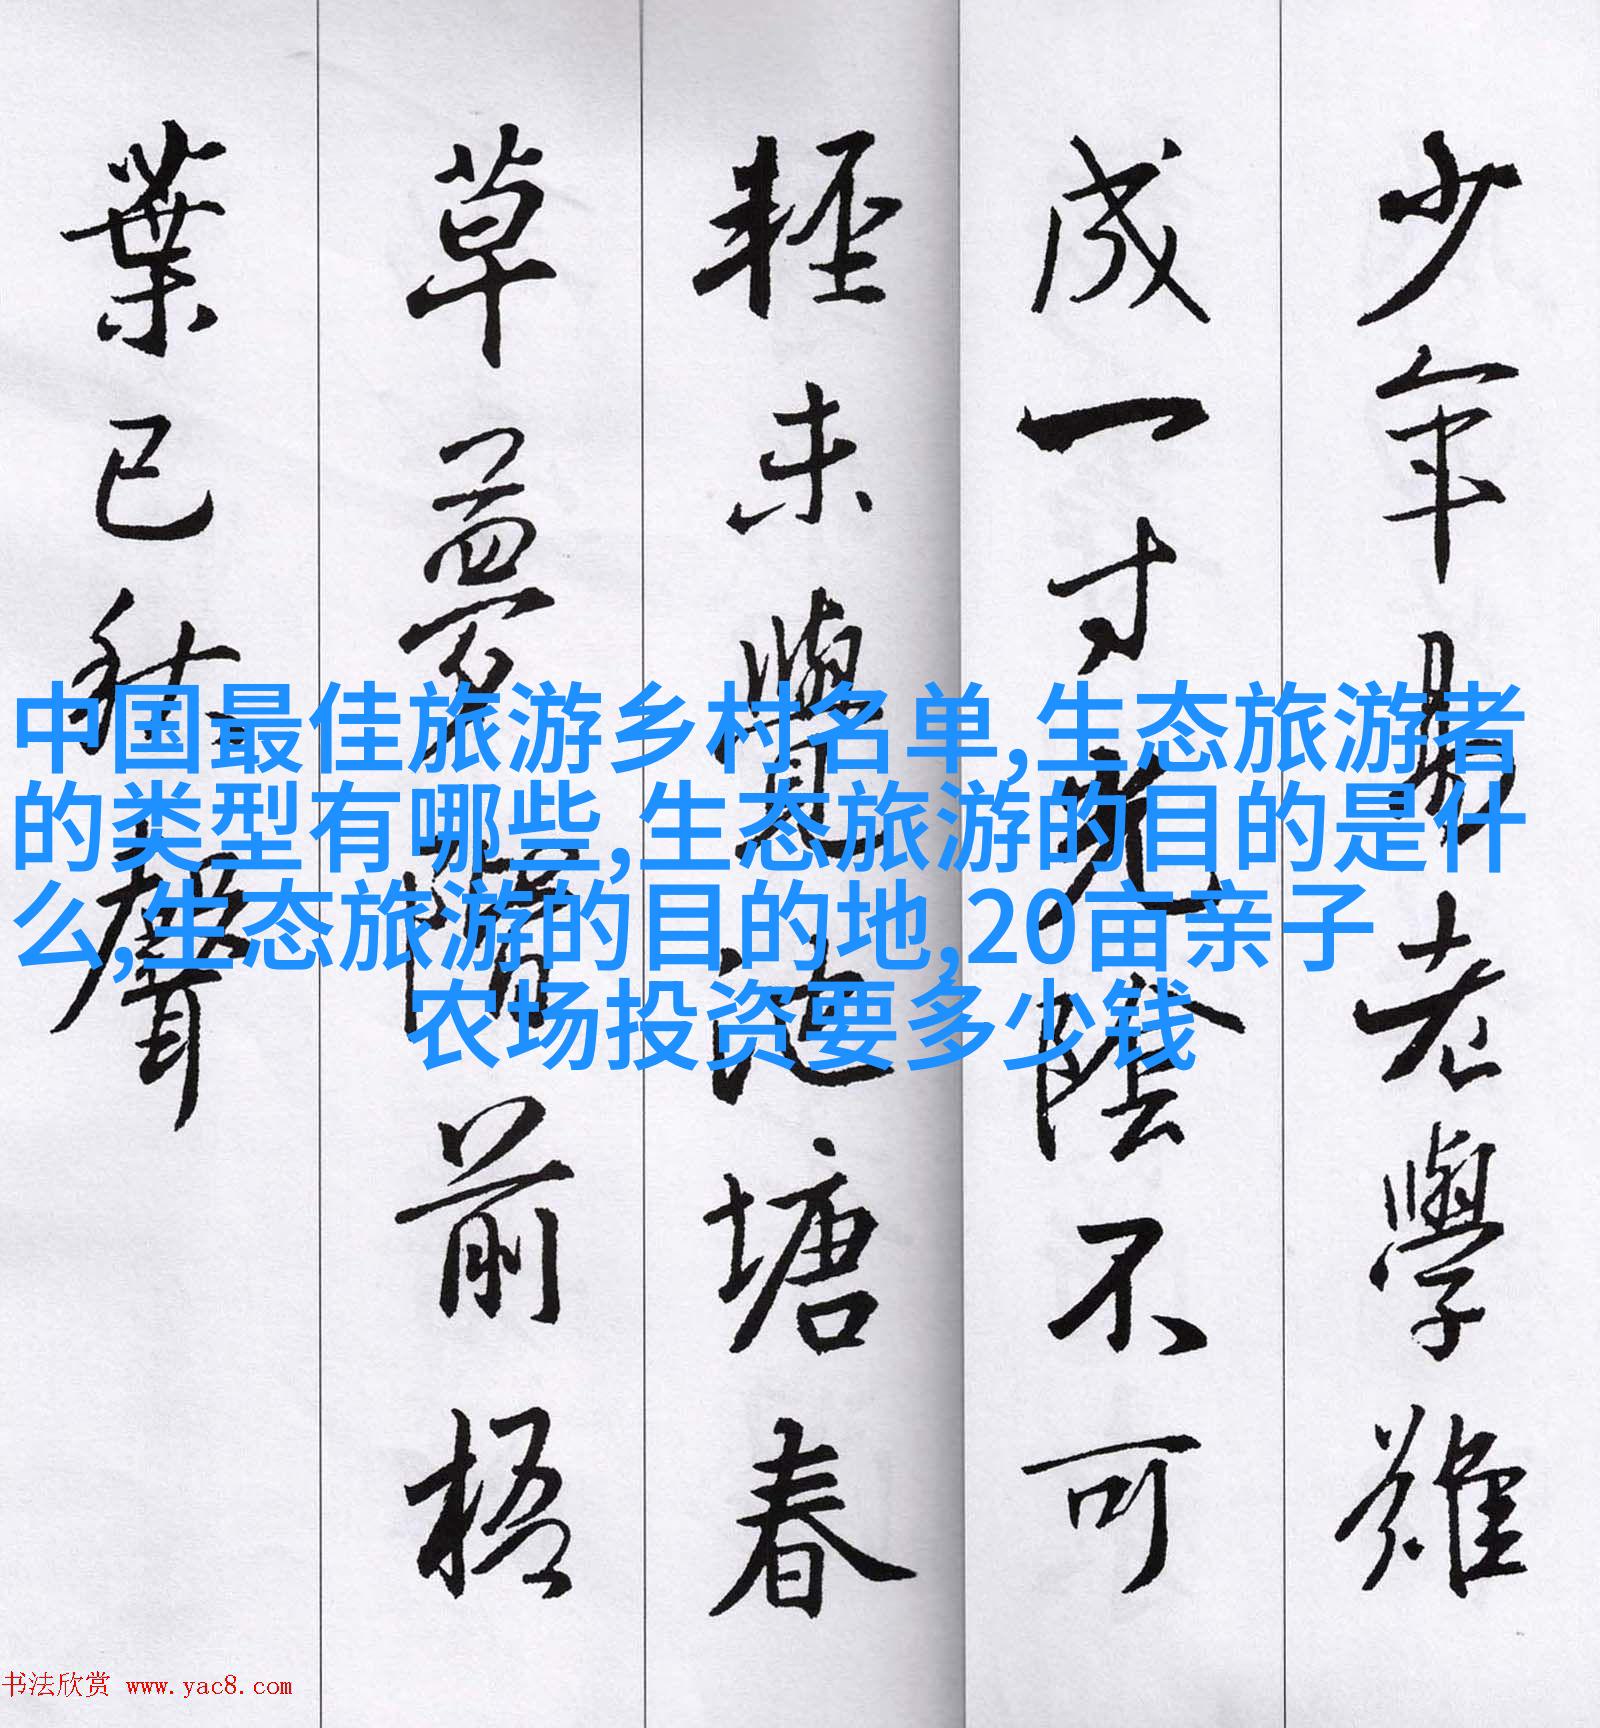 少年易老學難
成一寸光陰不可
輕未覺池塘春
草夢階前梧
葉已秋聲
中国最佳旅游乡村名单,生态旅游者
的类型有哪些,生态旅游的目的是什
么,生态旅游的目的地,20亩亲子
农场投资要多少钱
书法欣赏 www.yac8.com